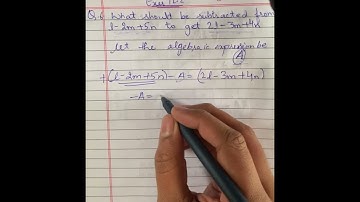 Q.6 What should be subtracted from
l-2m+5n to get 2l-3m+4n
let the algebraic expression be
A
+(l-2m+5n)-A=(2l-3m+4n)
-A=